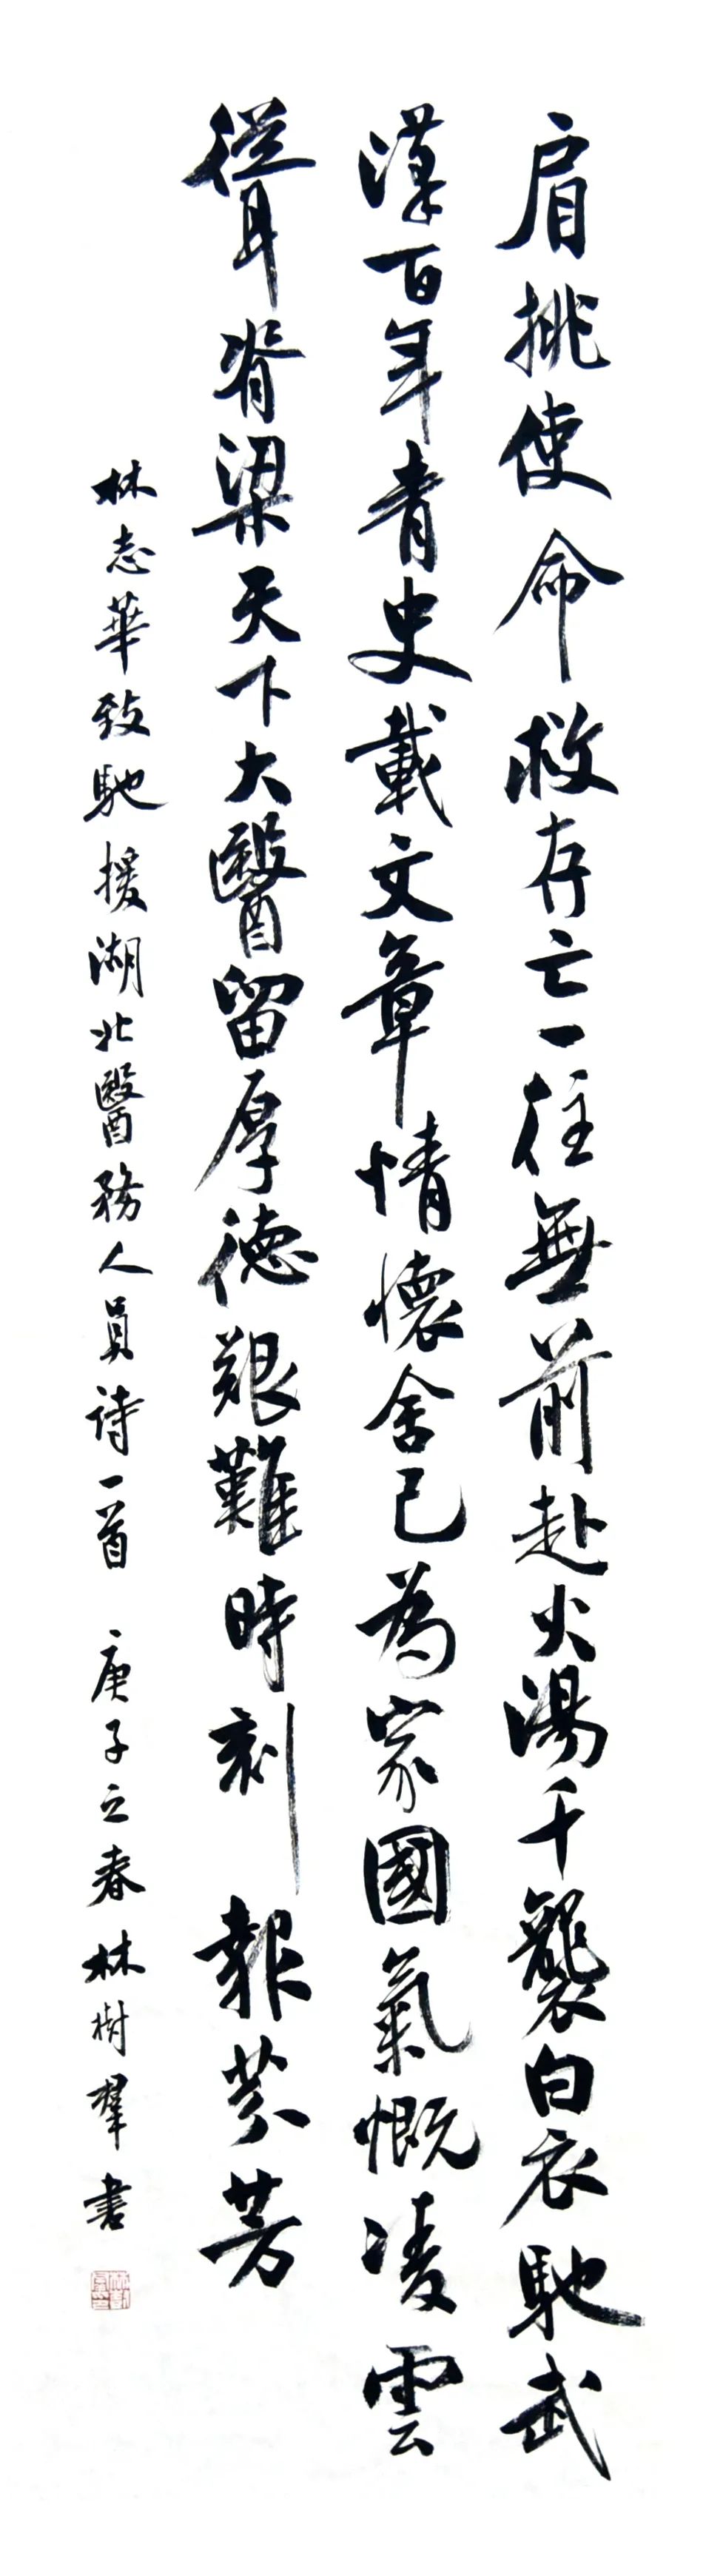 肩挑使命救存亡一往無前赴火湯千襲白衣馳武
漢百年青史載文章情懷舍己為家國氣慨凌雲
聳脊梁天下大醫留厚德艱難時刻報芬芳
林志華致馳援湖北醫務人員詩一首 庚子立春林樹群書